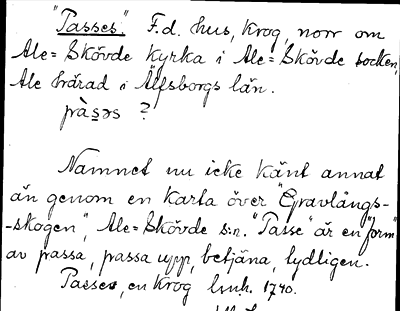 "Passes". F.d. hus, krog, norr om
Ale=Skövde kyrka i Ale=Skövde socken,
Ale härad i Älfsborgs län.
pàsəs ?
Namnet nu icke känt annat
än genom en karta över "Gravlångs-
-skogen", Ale=Skövde s:n. "Passe" är en "form"
av passa, passa upp, betjäna, tydligen.
Passes, en krog 1740.